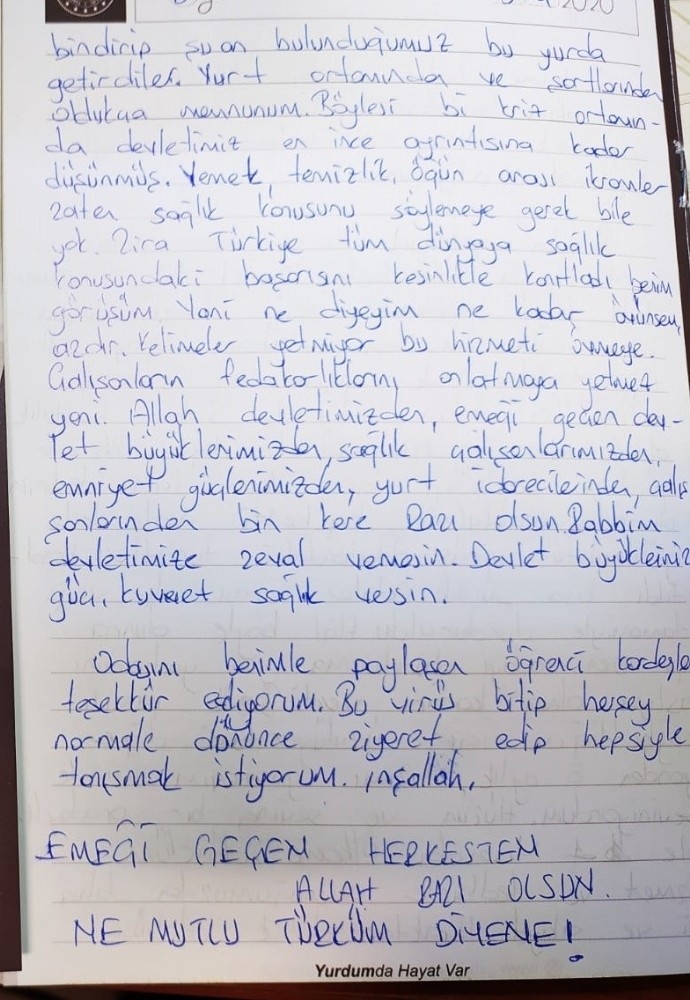 2020
bindirip şu an bulunduğumuz bu yurda
getirdiler. Yurt ortamında ve şartlarından
oldukça memnunum. Böylesi bi kriz ortamın-
da devletimiz en ince ayrıntısına kadar
düşünmüş. Yemek, temizlik, öğün arası ikramlar
zaten sağlık konusunu söylemeye gerek bile
yok. Zira Türkiye tüm dünyaya sağlık
konusundaki başarısını kesinlikle kanıtladı benim
görüşüm. Yani ne diyeyim ne kadar övünsem,
azdır. Kelimeler yetmiyor bu hizmeti övmeye.
Çalışanların fedakarlıklarını anlatmaya yetmez
yani. Allah devletimizden, emeği geçen dev-
let büyüklerimizden, sağlık çalışanlarımızdan,
emniyet güçlerimizden, yurt idarecilerinden, çalış
şanlarından bin kere Razı olsun. Rabbim
devletimize zeval vermesin. Devlet büyükleimiz
güç, kuvvet sağlık versin.
Odasını benimle paylaşan öğrenci kardeşle
teşekkür ediyorum. Bu virüs bitip herşey
normale dönünce ziyeret edip hepsiyle
tanışmak istiyorum. inşallah.
EMEĞİ GEÇEN HERKESTEN
ALLAH RAZI OLSUN.
NE MUTLU TÜRKÜM DİYENE!
Yurdumda Hayat Var